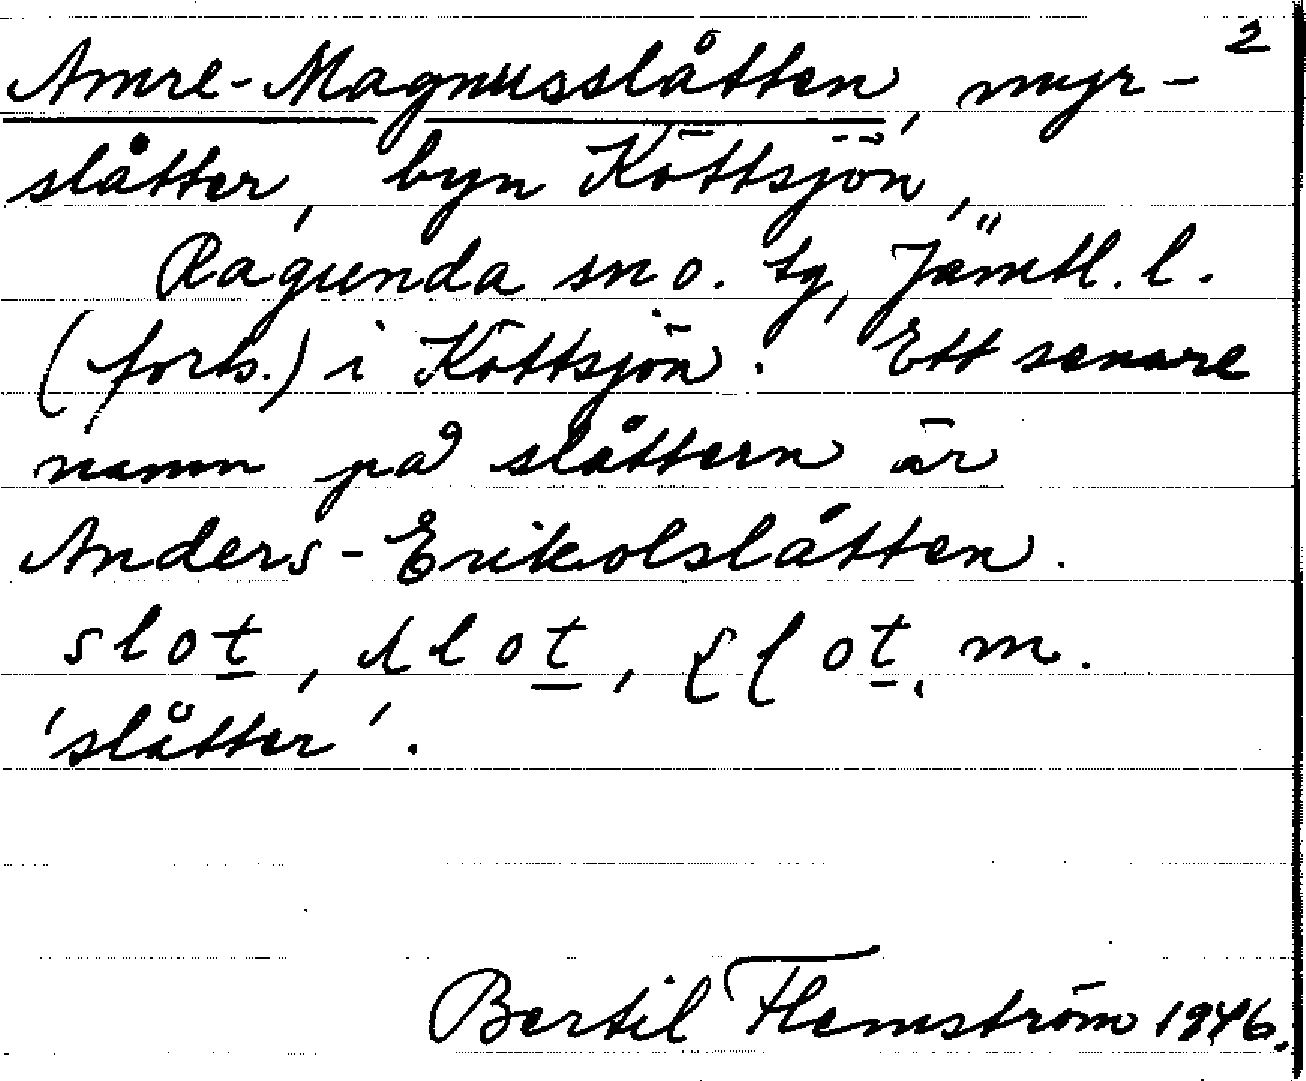 2
Amre-Magnusslåtten, myr-
slåtter, byn Köttsjön,
Ragunda sn o. tg, Jämtl. l.
(forts.) i Köttsjön. Ett senare
namn på slåttern är
Anders-Erikolslåtten.
slot, slot, ʂɭot, m.
'slåtter'.
Bertil Flemström 1946.